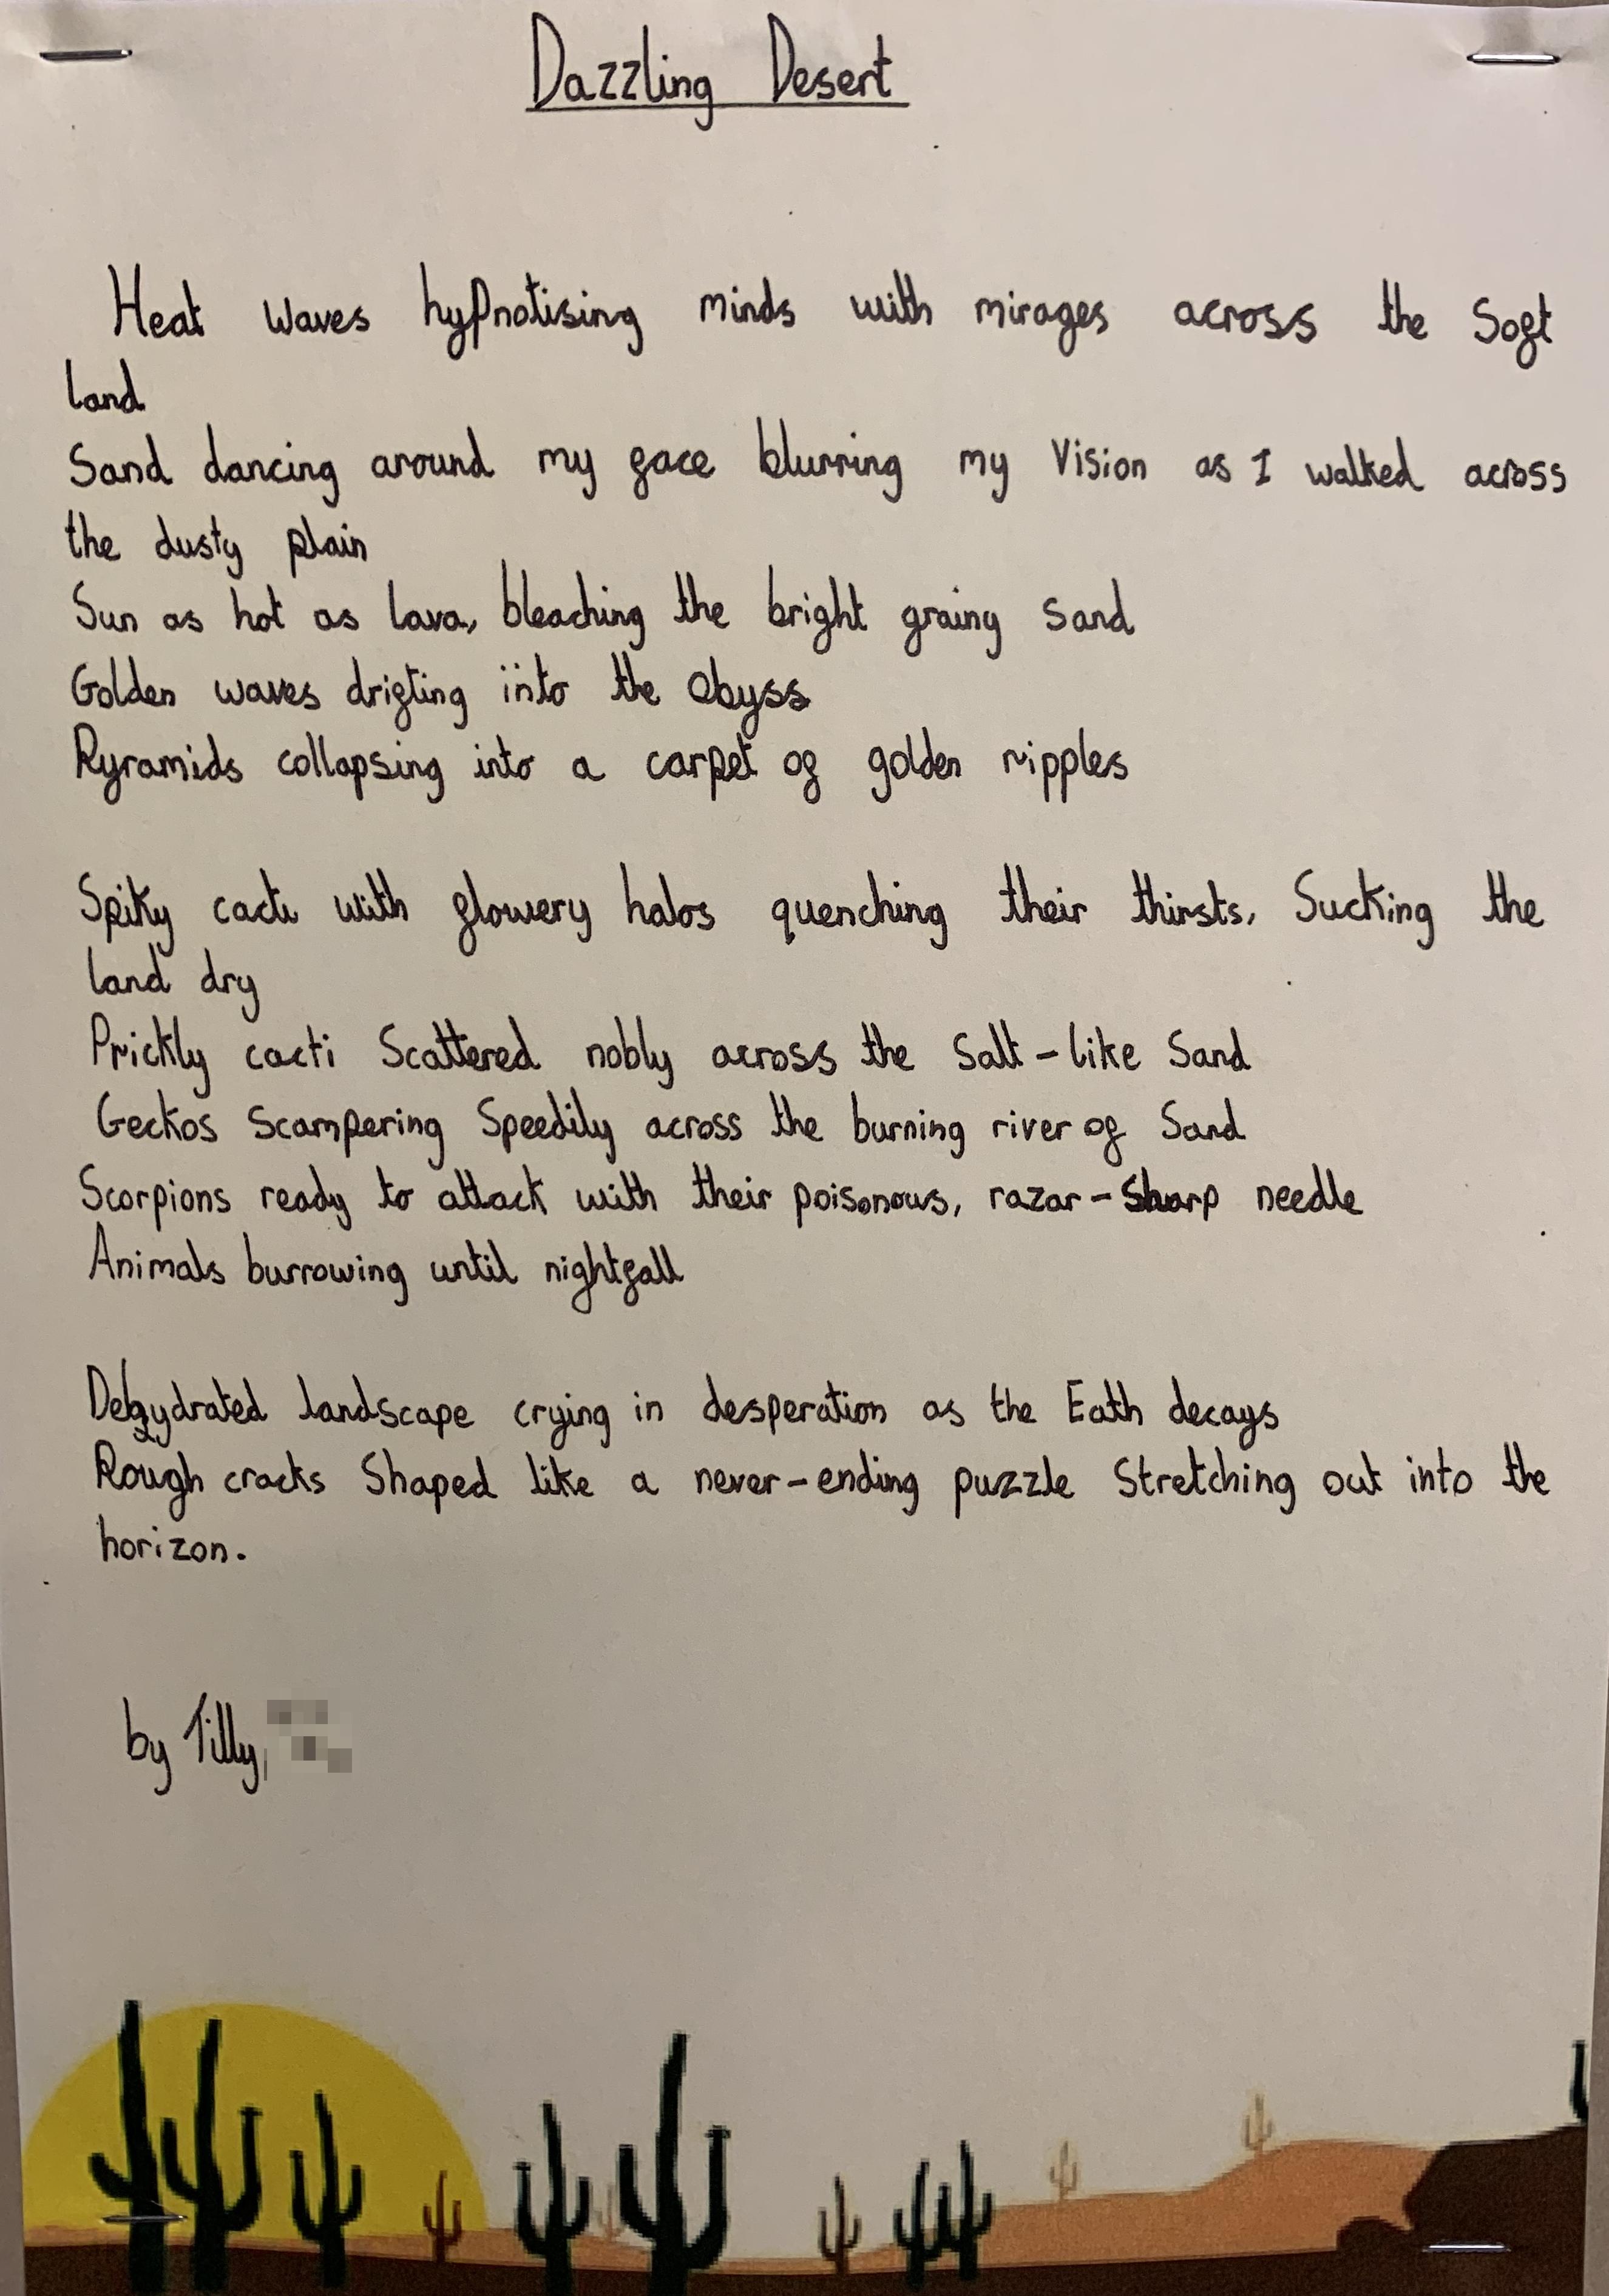 Dazzling Desert
Heat waves hypnotising minds with mirages across the soft
land
Sand dancing around my face blurring my vision as I walked across
the dusty plain
Sun as hot as lava, bleaching the bright grainy sand
Golden waves drifting into the abyss
Pyramids collapsing into a carpet of golden ripples
Spiky cacti with flowery halos quenching their thirsts, sucking the
land dry
Prickly cacti scattered nobly across the salt-like sand
Geckos scampering speedily across the burning river of sand
Scorpions ready to attack with their poisonous, razar-sharp needle
Animals burrowing until nightfall
Dehydrated landscape crying in desperation as the Eath decays
Rough cracks shaped like a never-ending puzzle stretching out into the
horizon.
by Tilly,